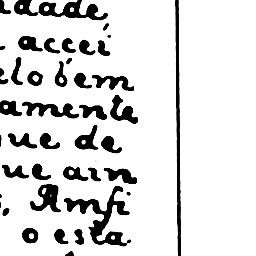 idade,
accei
elo bem
amente
que de
ue ain
s, Amfi
o esta